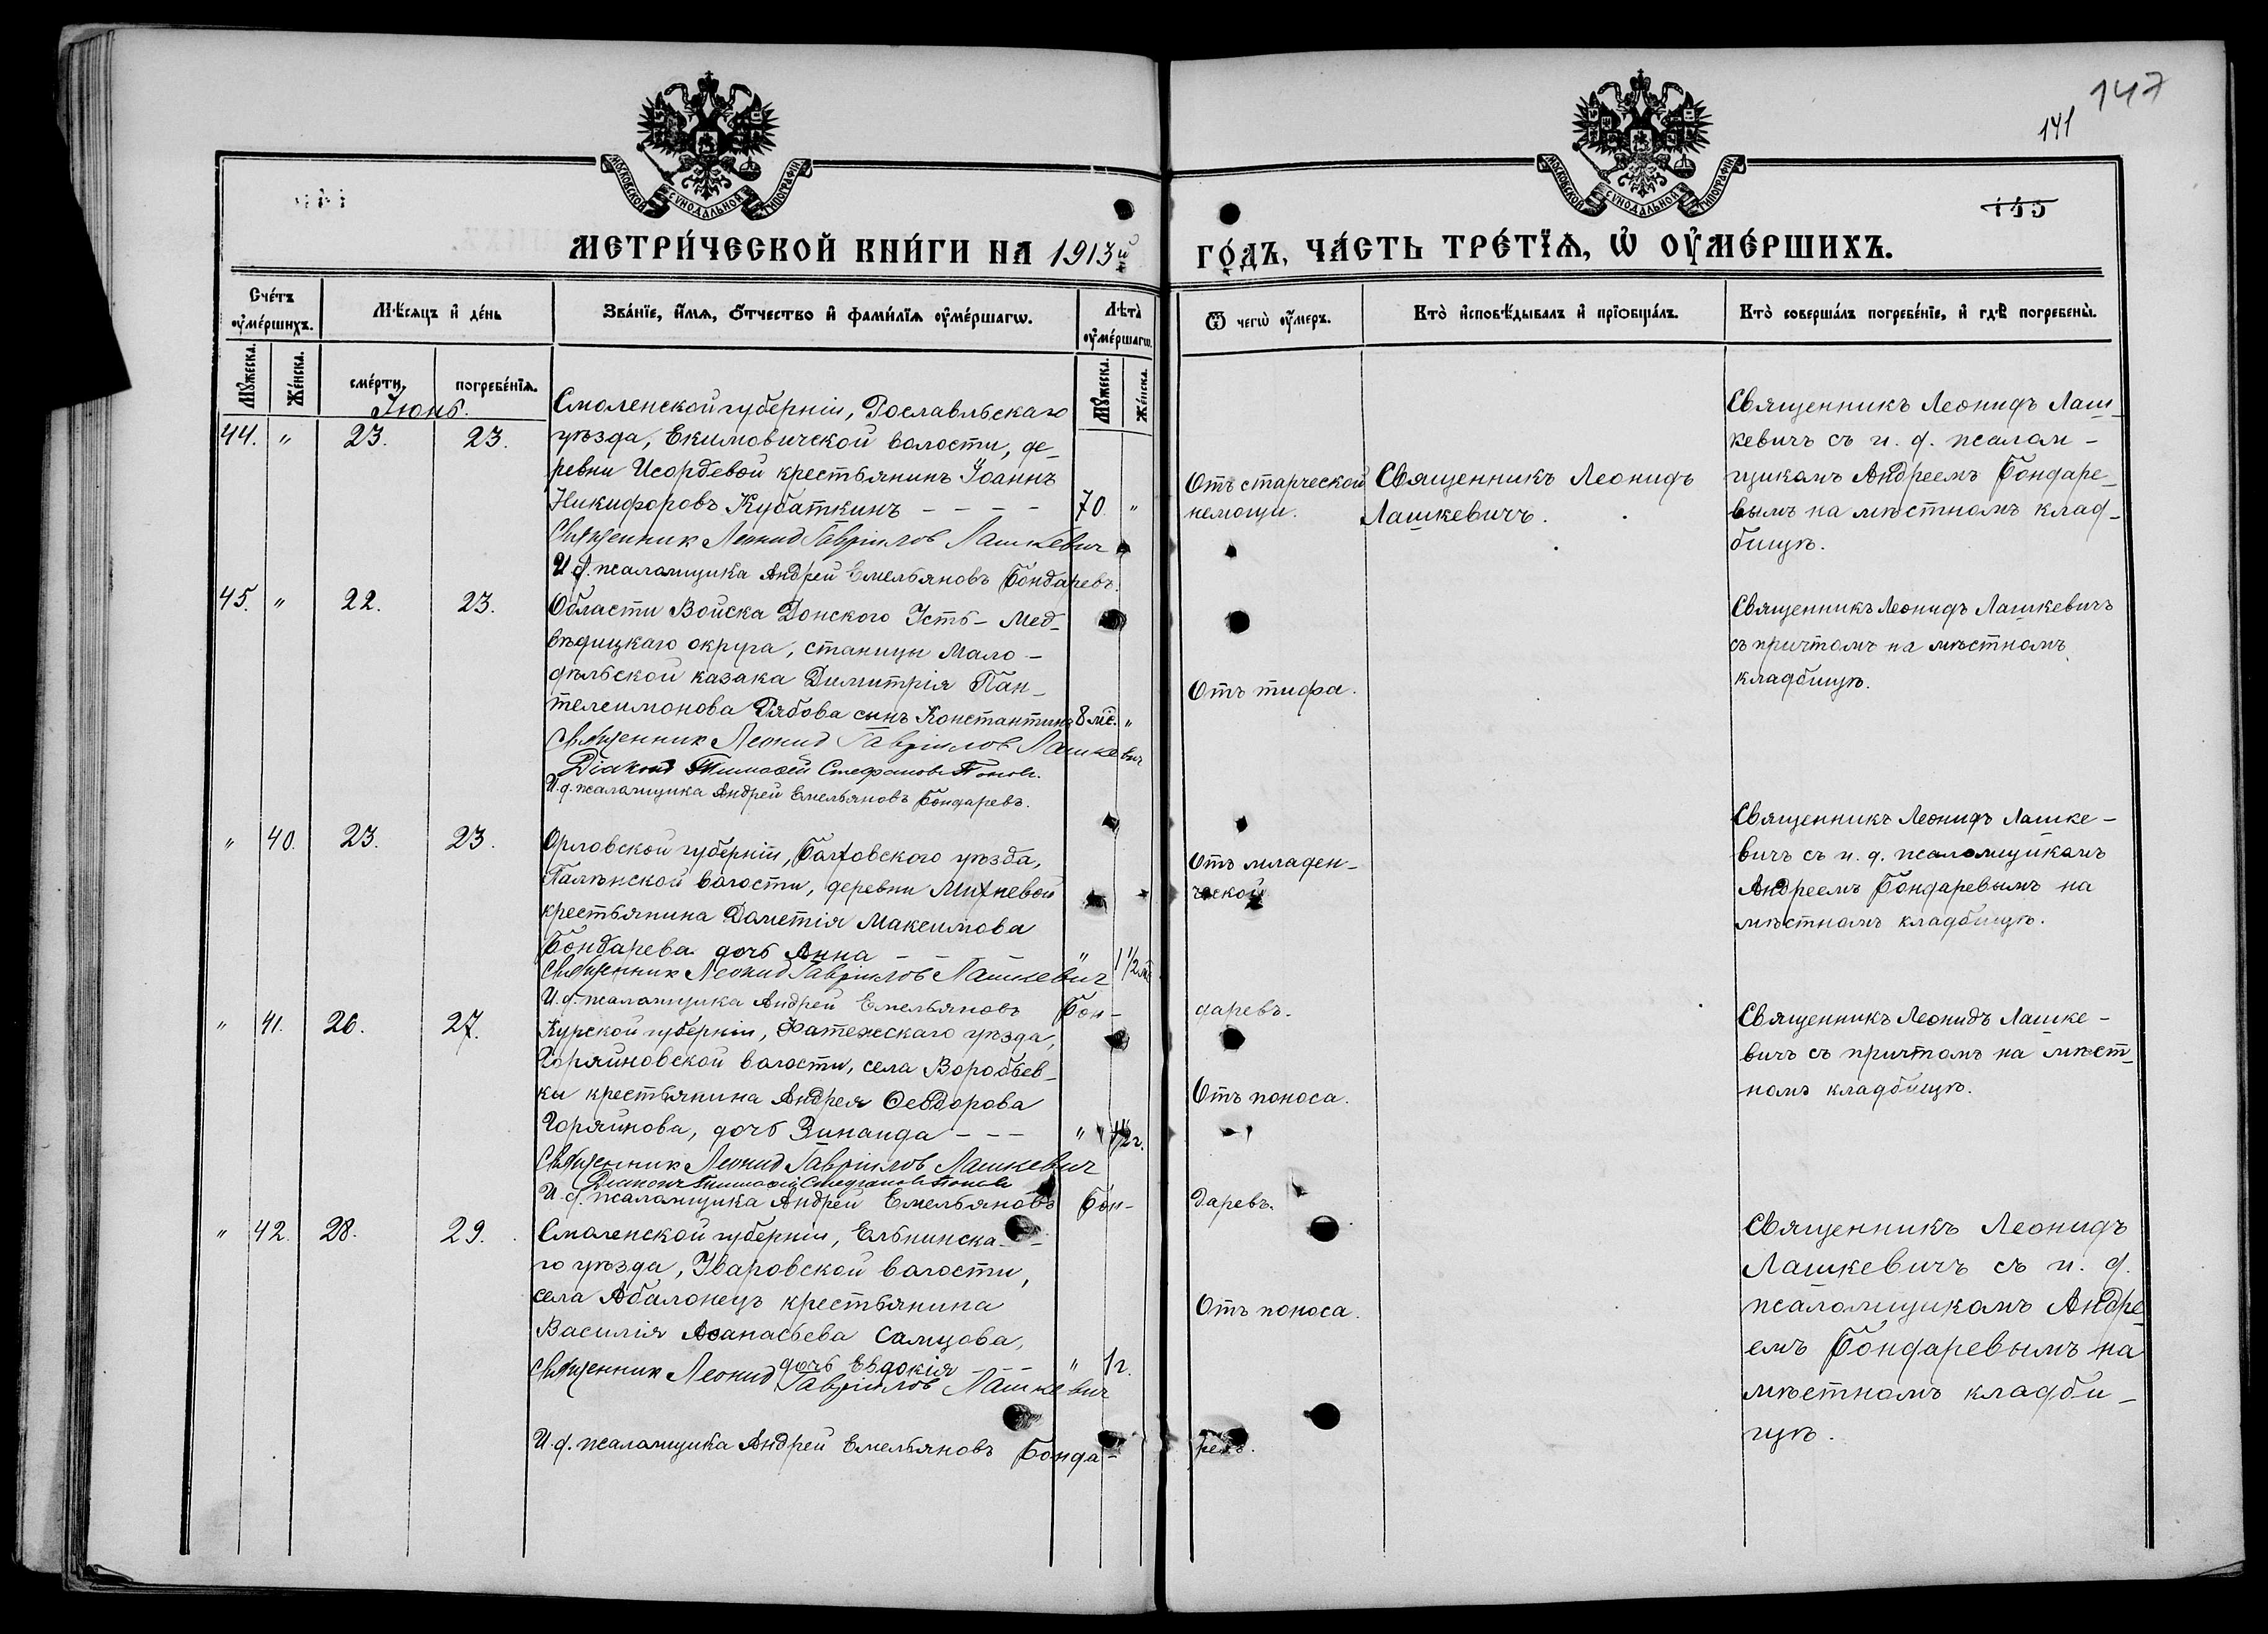 147
141
145
МОСКОВСКОЙ СѴНОДАЛЬНОЙ ТИПОГРАФІИ
МОСКОВСКОЙ СѴНОДАЛЬНОЙ ТИПОГРАФІИ
МЕТРИ́ЧЕСКОЙ КНИ́ГИ НА 1913й
ГО́ДЪ, ЧА́СТЬ ТРЕ́ТЇѦ, Ѡ ОУ҆МЕ́РШИХЪ.
Сче́тъ оу҆ме́ршихъ.
Мѣ́сяцъ и҆ де́нь
Зва́нїе, и҆́мѧ, ѻ҆́тчество и҆ фами́лїѧ оу҆ме́ршагѡ.
Лѣта̀ оу҆ме́ршагѡ.
Ѿ чегѡ̀ оу҆́меръ.
Кто̀ и҆сповѣ́дывалъ и҆ прїѻбща́лъ.
Кто̀ соверша́лъ погребе́нїе, и҆ гдѣ̀ погребены̀.
Мꙋ́жеска.
Же́нска.
сме́рти.
погребе́нїѧ.
Мꙋ́жеска.
Же́нска.
Іюнь.
44. " 23. 23.
Смоленской губерніи, Рославльскаго
уѣзда, Екимовичской волости, де-
ревни Исордевой крестьянинъ Іоаннъ
Никифоровъ Кубаткинъ - - - - 70. "
Священник Леонид Гавріилов Лашкевич
И. д. псаломщика Андрей Емельяновъ Бондаревъ.
Отъ старческой
немощи.
Священникъ Леонидъ
Лашкевичъ.
Священникъ Леонидъ Лаш-
кевичъ съ и. д. псалом-
щикомъ Андреемъ Бондаре-
вымъ на мѣстномъ клад-
бищѣ.
45. " 22. 23.
Области Войска Донского Усть-Мед-
вѣдицкаго округа, станицы Мало-
дѣльской казака Димитрія Пан-
телеимонова Рябова сынъ Константинъ 8 мѣс. "
Священник Леонид Гавріилов Лашкевич
Діаконъ Тимоѳей Стефановъ Поповъ.
И. д. псаломщика Андрей Емельяновъ Бондаревъ.
Отъ тифа.
Священникъ Леонидъ Лашкевичъ
съ причтомъ на мѣстномъ
кладбищѣ.
" 40. 23. 23.
Орловской губерніи, Болховского уѣзда,
волости, деревни Михневой
крестьянина Дометія Максимова
Бондарева дочь Анна - - - " 1 1/2 м.
Священник Леонид Гавріилов Лашкевич
И. д. псаломщика Андрей Емельяновъ Бон-
даревъ.
Отъ младен-
ческой
Священникъ Леонидъ Лашке-
вичъ съ и. д. псаломщикомъ
Андреемъ Бондаревымъ на
мѣстномъ кладбищѣ.
" 41. 26. 27.
Курской губерніи, Фатежскаго уѣзда,
Горяйновской волости, села Воробьев-
ки крестьянина Андрея Ѳеодорова
Горяйнова, дочь Зинаида - - - " 1/2 г.
Священник Леонид Гавріилов Лашкевич
Діаконъ Тимоѳей Стефановъ Поповъ
И. д. псаломщика Андрей Емельяновъ Бон-
даревъ.
Отъ поноса.
Священникъ Леонидъ Лашке-
вичъ съ причтомъ на мѣст-
номъ кладбищѣ.
" 42. 28. 29.
Смоленской губерніи, Ельнинска-
го уѣзда, Уваровской волости,
села Аболонецъ крестьянина
Василія Аѳанасьева Самцова,
дочь Евдокія - - - " 1 г.
Священник Леонид Гавріилов Лашкевич
И. д. псаломщика Андрей Емельяновъ Бонда-
ревъ.
Отъ поноса.
Священникъ Леонидъ
Лашкевичъ съ и. д.
псаломщикомъ Андре-
емъ Бондаревымъ на
мѣстномъ кладби-
щѣ.